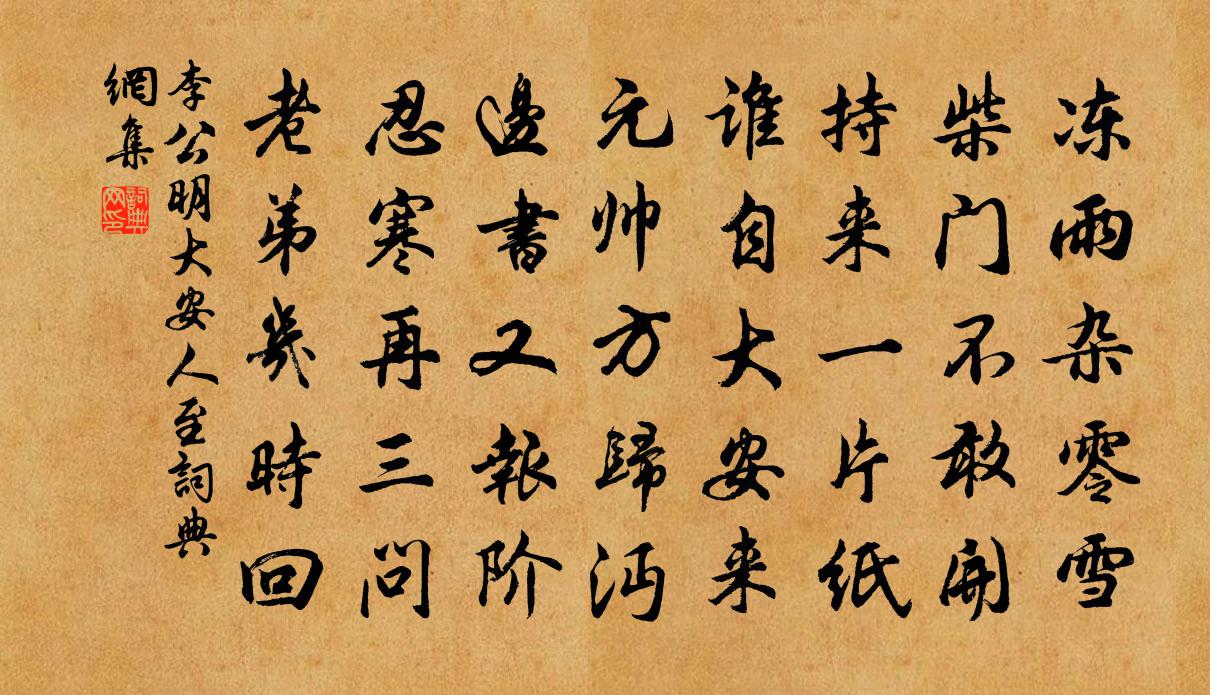 冻雨杂零雪
柴门不敢開
持来一片纸
谁自大安来
元帅方歸沔
邊書又報阶
忍寒再三问
老弟幾時回
李公明大安人至詞典
網集
詞典
网印